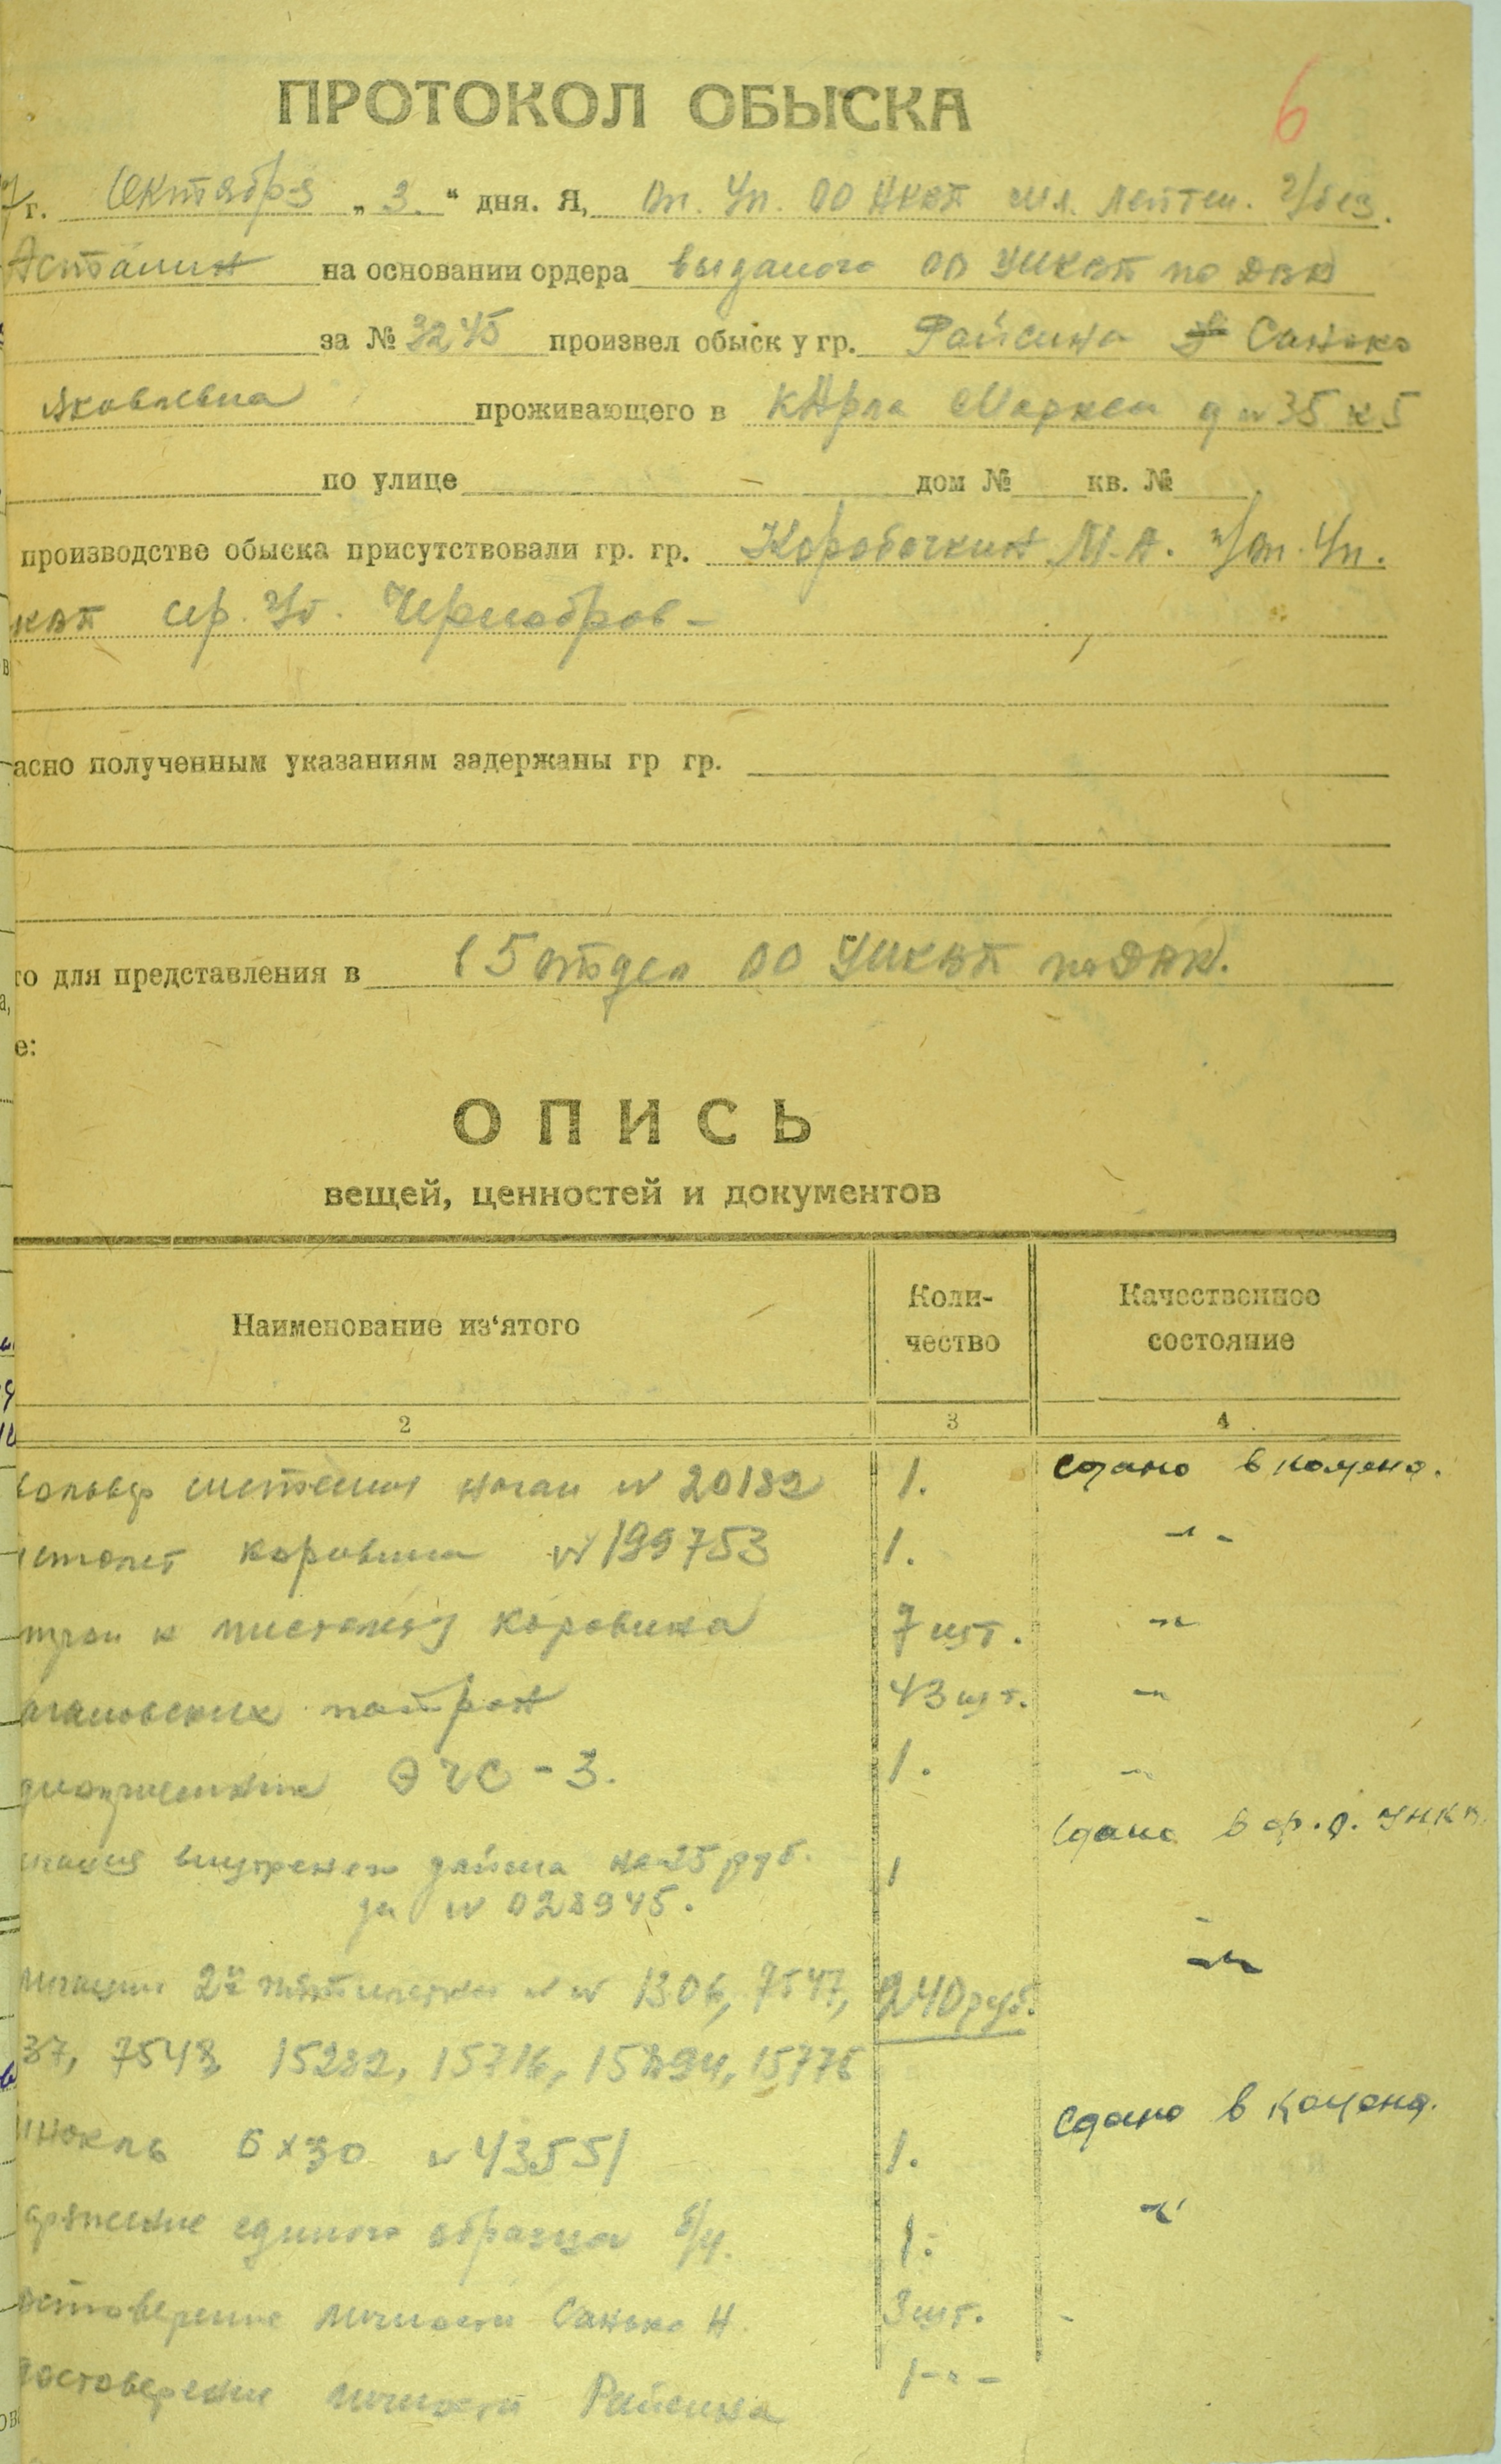 ПРОТОКОЛ ОБЫСКА
6
г. Октября „3.“ дня. Я, Оп. Уп. ОО НКВД мл. лейтен. г/без.
Астанин на основании ордера выданого ОО УНКВД по ДВК
за № 3245 произвел обыск у гр. Райсина Санько
Яковлевна проживающего в Карла Маркса д № 35 к 5
по улице дом № кв. №
производстве обыска присутствовали гр. гр. Коробочкин М. А. Оп. Уп.
КВД сер. Чернобров -
асно полученным указаниям задержаны гр гр.
го для представления в 15 отдел ОО УНКВД по ДВК.
е:
ОПИСЬ
вещей, ценностей и документов
Наименование из‘ятого Коли-чество Качественное состояние
2 3 4
вольвер системы наган № 20182 1. сдано в коменд.
истолет коровина № 199753 1. -"-
трон к пистолету коровина 7 шт. -"-
агановских патрон 43 шт. -"-
1. -"-
внутренего займа на 25 руб. 1 Сдано в ф.о. УНКВ
за № 028945.
лигации 2й пятилетки № № 1306, 7547, 240 руб. -"-
37, 7548, 15282, 15716, 15894, 15776
инокль 6 х 30 № 43551 1. Сдано в Коменд.
аряжение единого образца б/у. 1. -"-
остоверение личности Санько Н. 3 шт. -
достоверение личности Райсина 1 -"-